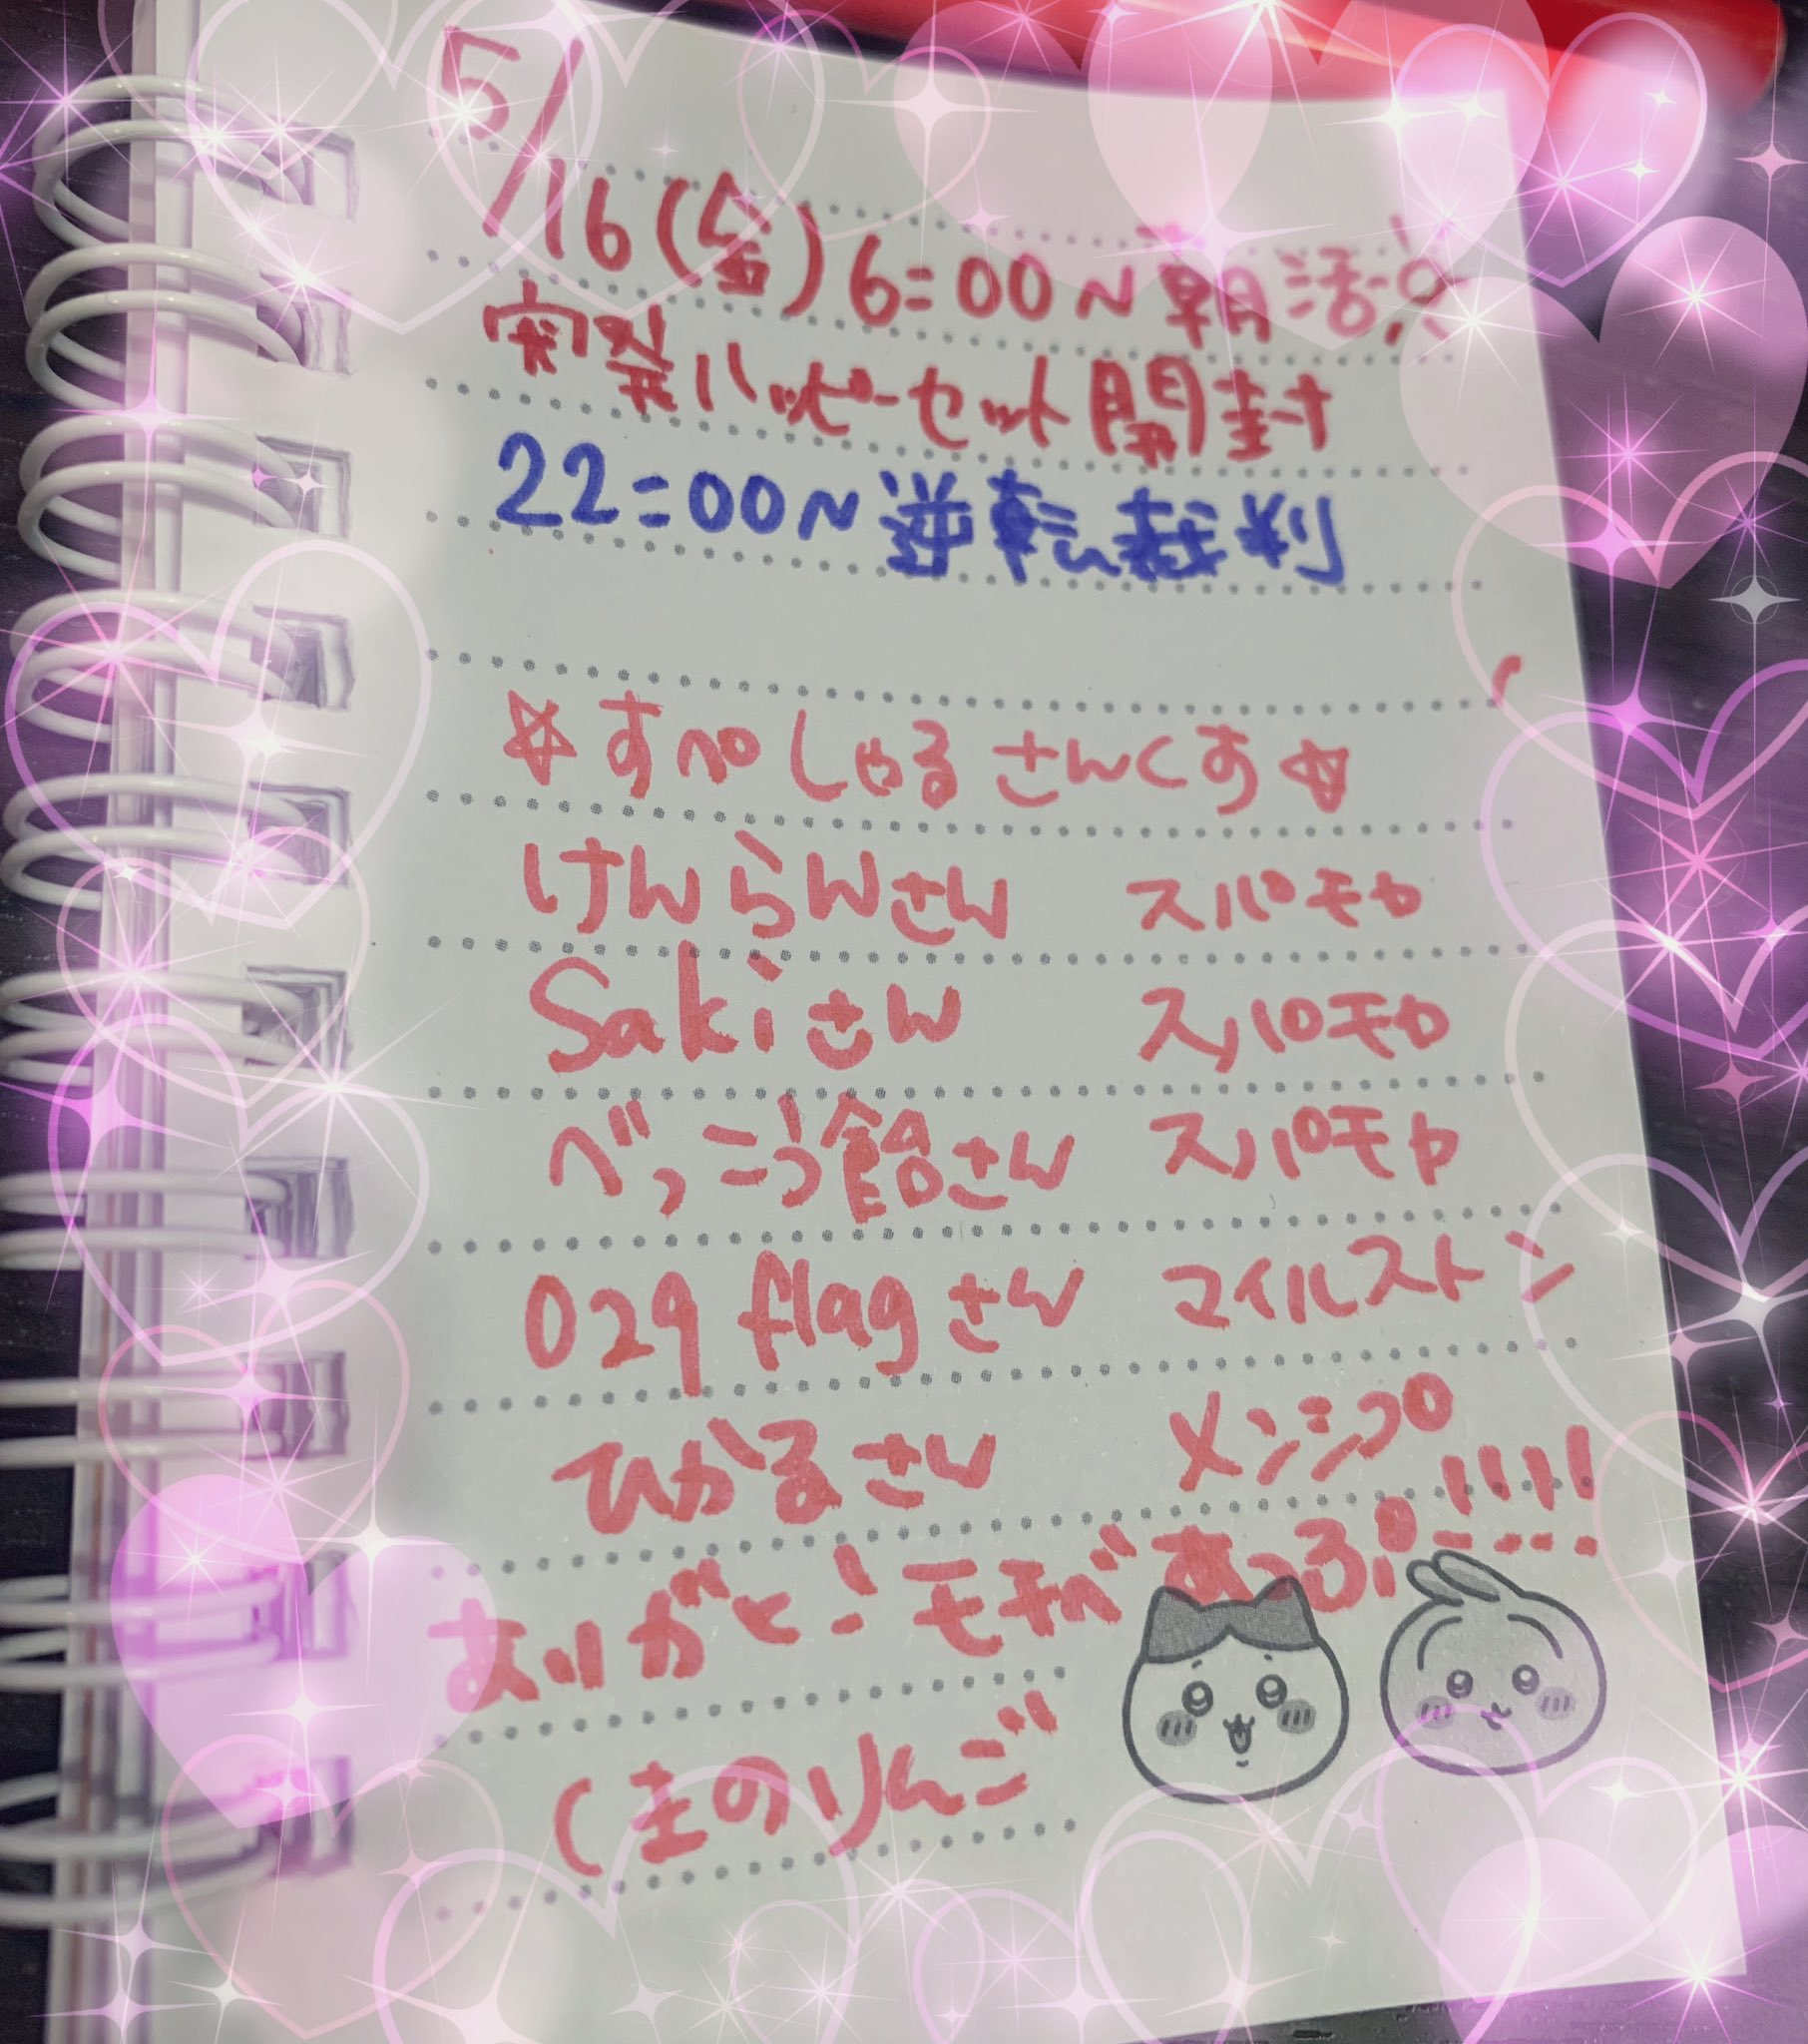 5/16(金)6:00~朝活!?
突発ハッピーセット開封
22:00~逆転裁判
☆すぺしゃるさんくす☆
けんらんさん スパモャ
Sakiさん スパモャ
べっこう飴さん スパモャ
029flagさん マイルストン
ひかるさん メンシプ
ありがと!モチベあっぷ!!!!!
くまのりんご